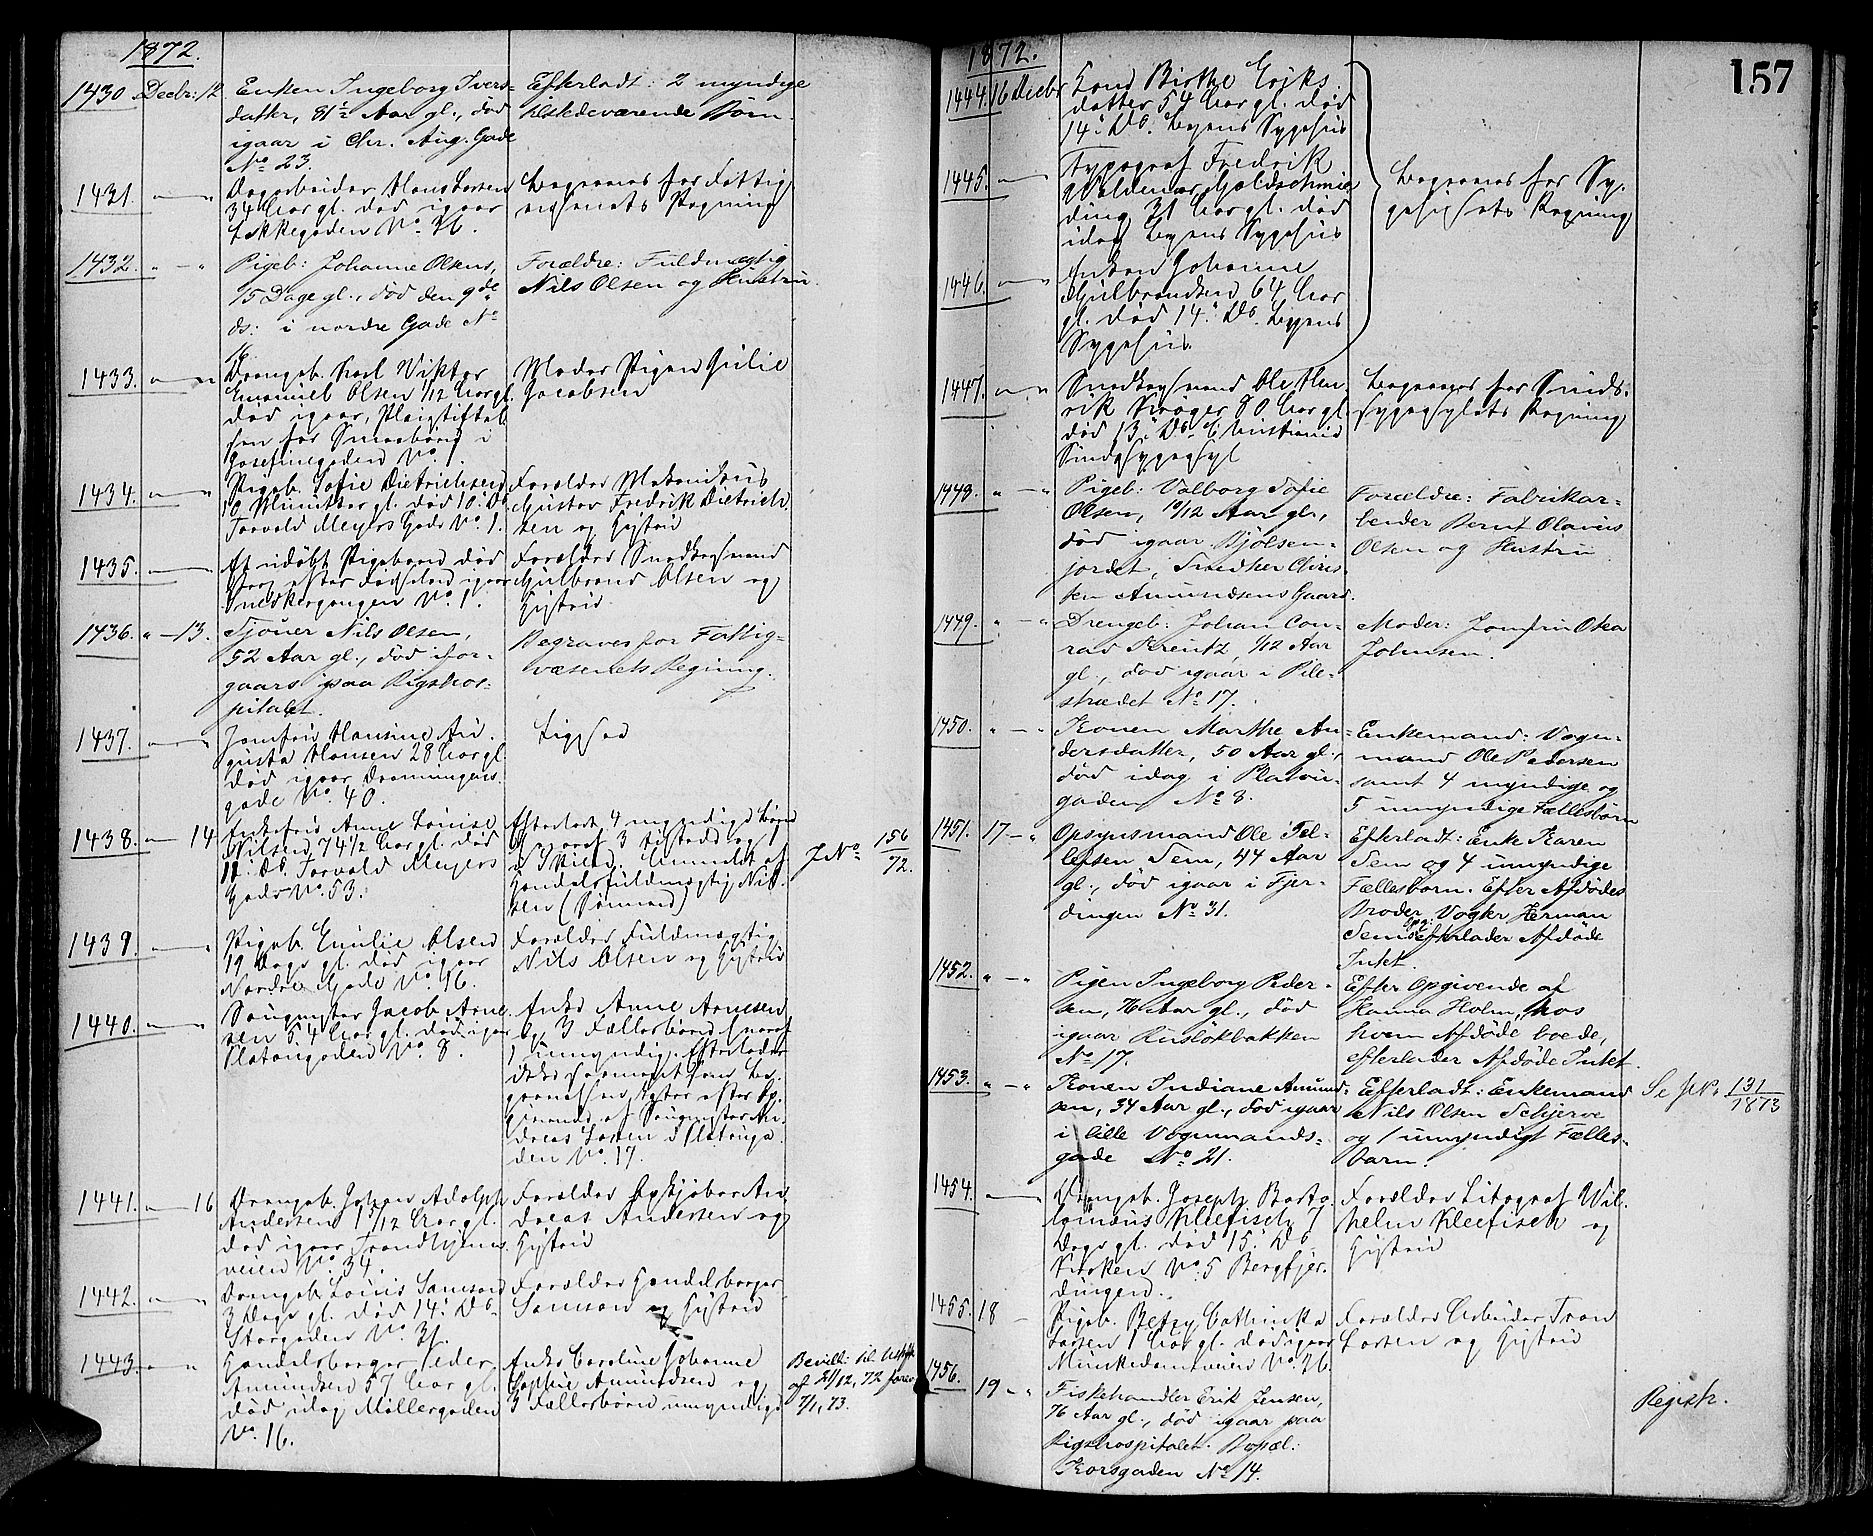 1872.
1430 Decbr: 12. Enken Ingeborg Ivers-
datter, 81½ Aar gl., død
igaar i Chr. Aug. Gade
No 23.
Efterladt: 2 myndige
tilstedeværende Børn.
1431. Dagarbeider Hans Larsen
34 Aar gl. død igaar
Lakkegaden No. 36.
Begraves for Fattig
væsenets Regning
1432. Pigeb: Johanne Olsens,
15 Dage gl., død den 9de
ds: i nordre Gade No
16.
Forældre: Fuldmægtig
Nils Olsen og Hustru.
1433. Drengeb. Karl Viktor
Emanuel Olsen 1/12 Aar gl.
død igaar, Pleiestiftel-
sen for Smaabørn i
Josefinegaden No. 1.
Moder Pigen Julie
Jacobsen
1434. Pigeb. Sofie Dietrichsen
død 10. Ds
Torvald Meyers Gade No. 1.
Forældre Mekanikus
Gustav Fredrik Dietrich-
sen og Hustru
1435. Et udøbt Pigebarn død
strax efter Fødselen igaar
Snedkergangen No. 1.
Forældre Snedkersvend
Gulbrand Olsen og
Hustru.
1436. 13. Sjouer Nils Olsen,
52 Aar gl., død ifor-
gaars paa Rigshos-
pitalet.
Begraves for Fattig-
væsenets Regning.
1437. Jomfru Hansine Au-
gusta Hansen 28 Aar gl.
død igaar Dronningens
gade No. 40.
Ligsed
1438. 14 Enkefru Anne Louise
Nilsen 74½ Aar gl. død
11. Ds. Torvald Meyers
Gade No. 53.
Efterladt 4 myndige Børn
hvoraf 3 tilstede og 1
Anmeldt af
Handelsfuldmægtig Nil-
sen (Sønnen)
JNo. 156/72.
1439. Pigeb. Emilie Olsen
19 Dage gl. død igaar
Nordre Gade No. 16.
Forældre Fuldmægtig
Nils Olsen og Hustru
1440. Sangmester Jacob Arne-
sen 54 Aar gl. død igaar
Platougaden No. 8.
Enke Anne Arnesen
og 3 Fællesbørn hvoraf
1 umyndig. Efterlader
efter Op-
givende af Sangmester An-
dreas Larsen i Platouga-
den No. 17.
1441. 16 Drengeb. Johan Adolph
Andersen 1 3/12 Aar gl.
død igaar Trondhjems-
veien No. 34.
Forældre Opkjøber An-
dreas Andersen og
Hustru
1442. Drengeb. Louis Samson
3 Dage gl. død 14. Ds
Storgaden No. 31.
Forældre Handelsborger
Samson og Hustru
1443. Handelsborger Peder
Amundsen 57 Aar gl.
død idag Møllergaden
No. 16.
Enke Caroline Johanne
Sophie Amundsen og
3 Fællesbørn umyndige
Bevill: til
af 21/12, 72 forev.
7/1, 73.
1872.
157
1444. 16 Decbr Kone Birthe Eriks-
datter 54 Aar gl. død
14. Ds. Byens Sygehus
1445. Typograf Fredrik
Valdemar Goldschmie-
ding 31 Aar gl. død
idag Byens Sygehus
Begraves for Sy-
gehusets Regning
1446. Enken Johanne
Gulbrandsen 64 Aar
gl. død 14. Ds. Byens
Sygehus.
1447. Snedkersvend Ole Hen-
rik Krøger 80 Aar gl.
død 13. Ds. Christiania
Sindsygeasyl
Begraves for Sinds-
sygeasylets Regning
1448. Pigeb: Valborg Sofie
Olsen, 10/12 Aar gl.,
død igaar Bjølsen-
jordet, Snedker Chris-
ten Amundsens Gaard.
Forældre: Fabrikar-
beider Bernt Olavus
Olsen og Hustru
1449. Drengeb: Johan Con-
rad Kreutz, 1/12 Aar
gl., død igaar i Pile-
strædet No 17.
Moder: Jomfru Oka
Johnsen.
1450. Konen Marthe An-
dersdatter, 50 Aar gl.,
død idag i Platou-
gaden No 8.
Enkemand: Vogn-
mand Ole Pedersen
samt 4 myndige og
5 umyndige Fællesbørn
1451. 17 Opsynsmand Ole Tel-
lefsen Sem, 44 Aar
gl., død igaar i Fjer-
dingen No 31.
Efterladt: Enke Karen
Sem og 4 umyndige
Fællesbørn. Efter Afdødes
Broder Vogter Herman
Sems Opg: efterlader Afdøde
Intet.
1452. Pigen Ingeborg Peder-
sen, 76 Aar gl., død
igaar Ruslökbakken
No 17.
Efter Opgivende af
Hanna Holm, hos
hvem Afdøde boede,
efterlader Afdøde Intet.
1453. Konen Indiane Amund-
sen, 34 Aar gl., død igaar
i lille Vognmands-
gade No 21.
Efterladt: Enkemand
Nils Olsen Schjerve
og 1 umyndigt Fælles-
barn.
Se JNo 131/1873
1454. Drengeb. Joseph Barto-
lomæus Kleefisch 7
Dage gl. død 15. Ds
No. 5 Bergfjer-
dingen.
Forældre Litograf Wil-
helm Kleefisch og
Hustru
1455. 18 Pigeb. Betzy Cathinka
Larsen 1 Aar gl. død igaar
Munkedamsveien No. 26.
Forældre Arbeider Tron
Larsen og Hustru
1456. 19 Fiskehandler Erik Jensen,
76 Aar gl., død igaar paa
Rigshospitalet. Bopæl:
Korsgaden No 14.
Registr.